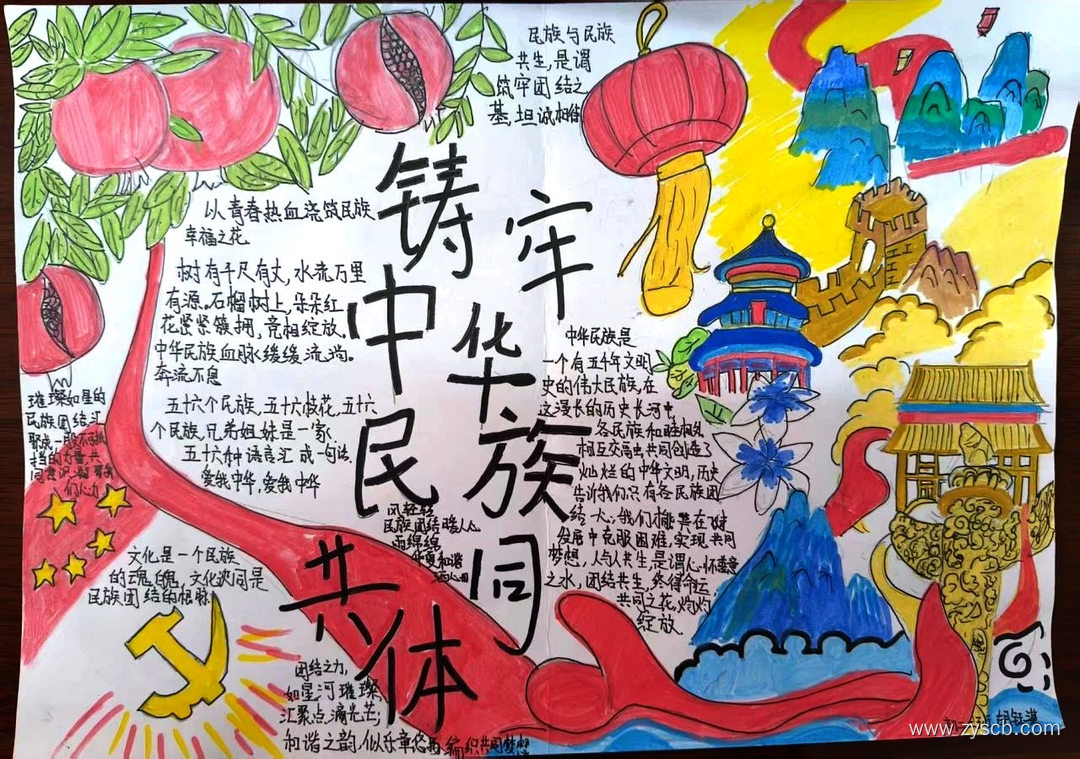 铸牢
中华
民族
共同
体
民族与民族
共生,是谓
筑牢团结之
基,坦诚相待
以青春热血浇筑民族
幸福之花
树有千尺有丈,水流万里
有源。石榴树上,朵朵红
花紧紧簇拥,竞相绽放。
中华民族血脉缓缓流淌。
奔流不息
五十六个民族,五十六枝花,五十六
个民族,兄弟姐妹是一家,
五十六种语言汇成一句话
爱我中华,爱我中华
璀璨如星的
民族团结汇
们心力
文化是一个民族
的魂魄,文化认同是
民族团结的根脉
风轻轻
民族团结暖人心
雨绵绵
华夏和谐
中华民族是
一个有五千年文明
史的伟大民族,在
这漫长的历史长河中
各民族和睦相处
相互交融共同创造了
灿烂的中华文明,历史
告诉我们只有各民族团
发展中克服困难,实现共同
梦想,人与人共生,是谓心怀
之水,团结共生,终得命运
共同之花,灼灼
绽放
团结之力,
如星河璀璨,
汇聚点滴光芒;
和谐之韵,似乐章悠扬,编织共同梦想
www.zyscb.com